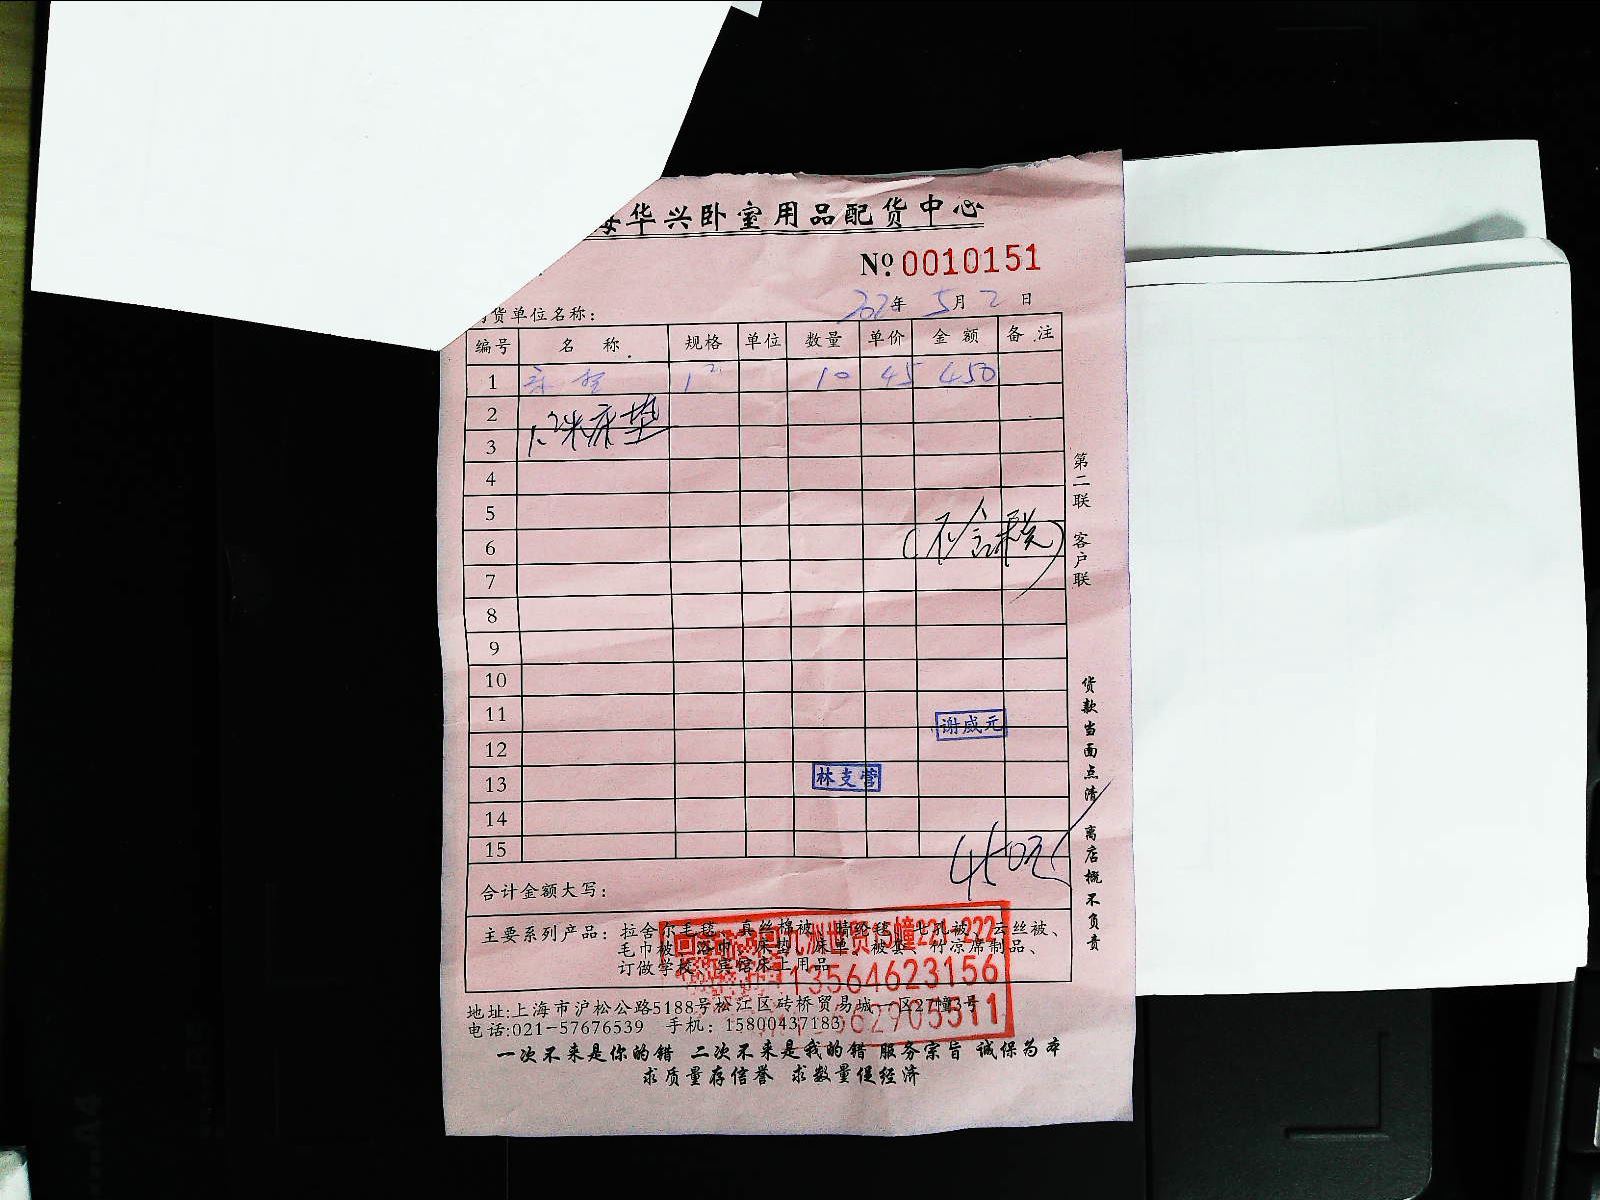 海华兴卧室用品配货中心
Nº 0010151
货单位名称： 年 5月 2日
编号 名 称 规格 单位 数量 单价 金 额 备 注
1 1² 10 45 450
2
1.2米床垫
3
4
5
(不含税)
6
7
8
9
10
11
谢威元
12
13 林支营
14
15
450元
合计金额大写：
主要系列产品：拉舍尔毛毯、真丝棉被、晴纶毯、七孔被、云丝被、
毛巾被、浴巾、床垫、床单、被套、竹凉席制品、
订做学校、宾馆床上用品
九洲世贸15幢221-222
13564623156
62905511
地址:上海市沪松公路5188号松江区砖桥贸易城一区27幢3号
电话:021-57676539 手机：15800437183
一次不来是你的错 二次不来是我的错 服务宗旨 诚保为本
求质量存信誉 求数量促经济
第二联 客户联
货款当面点清 离店概不负责